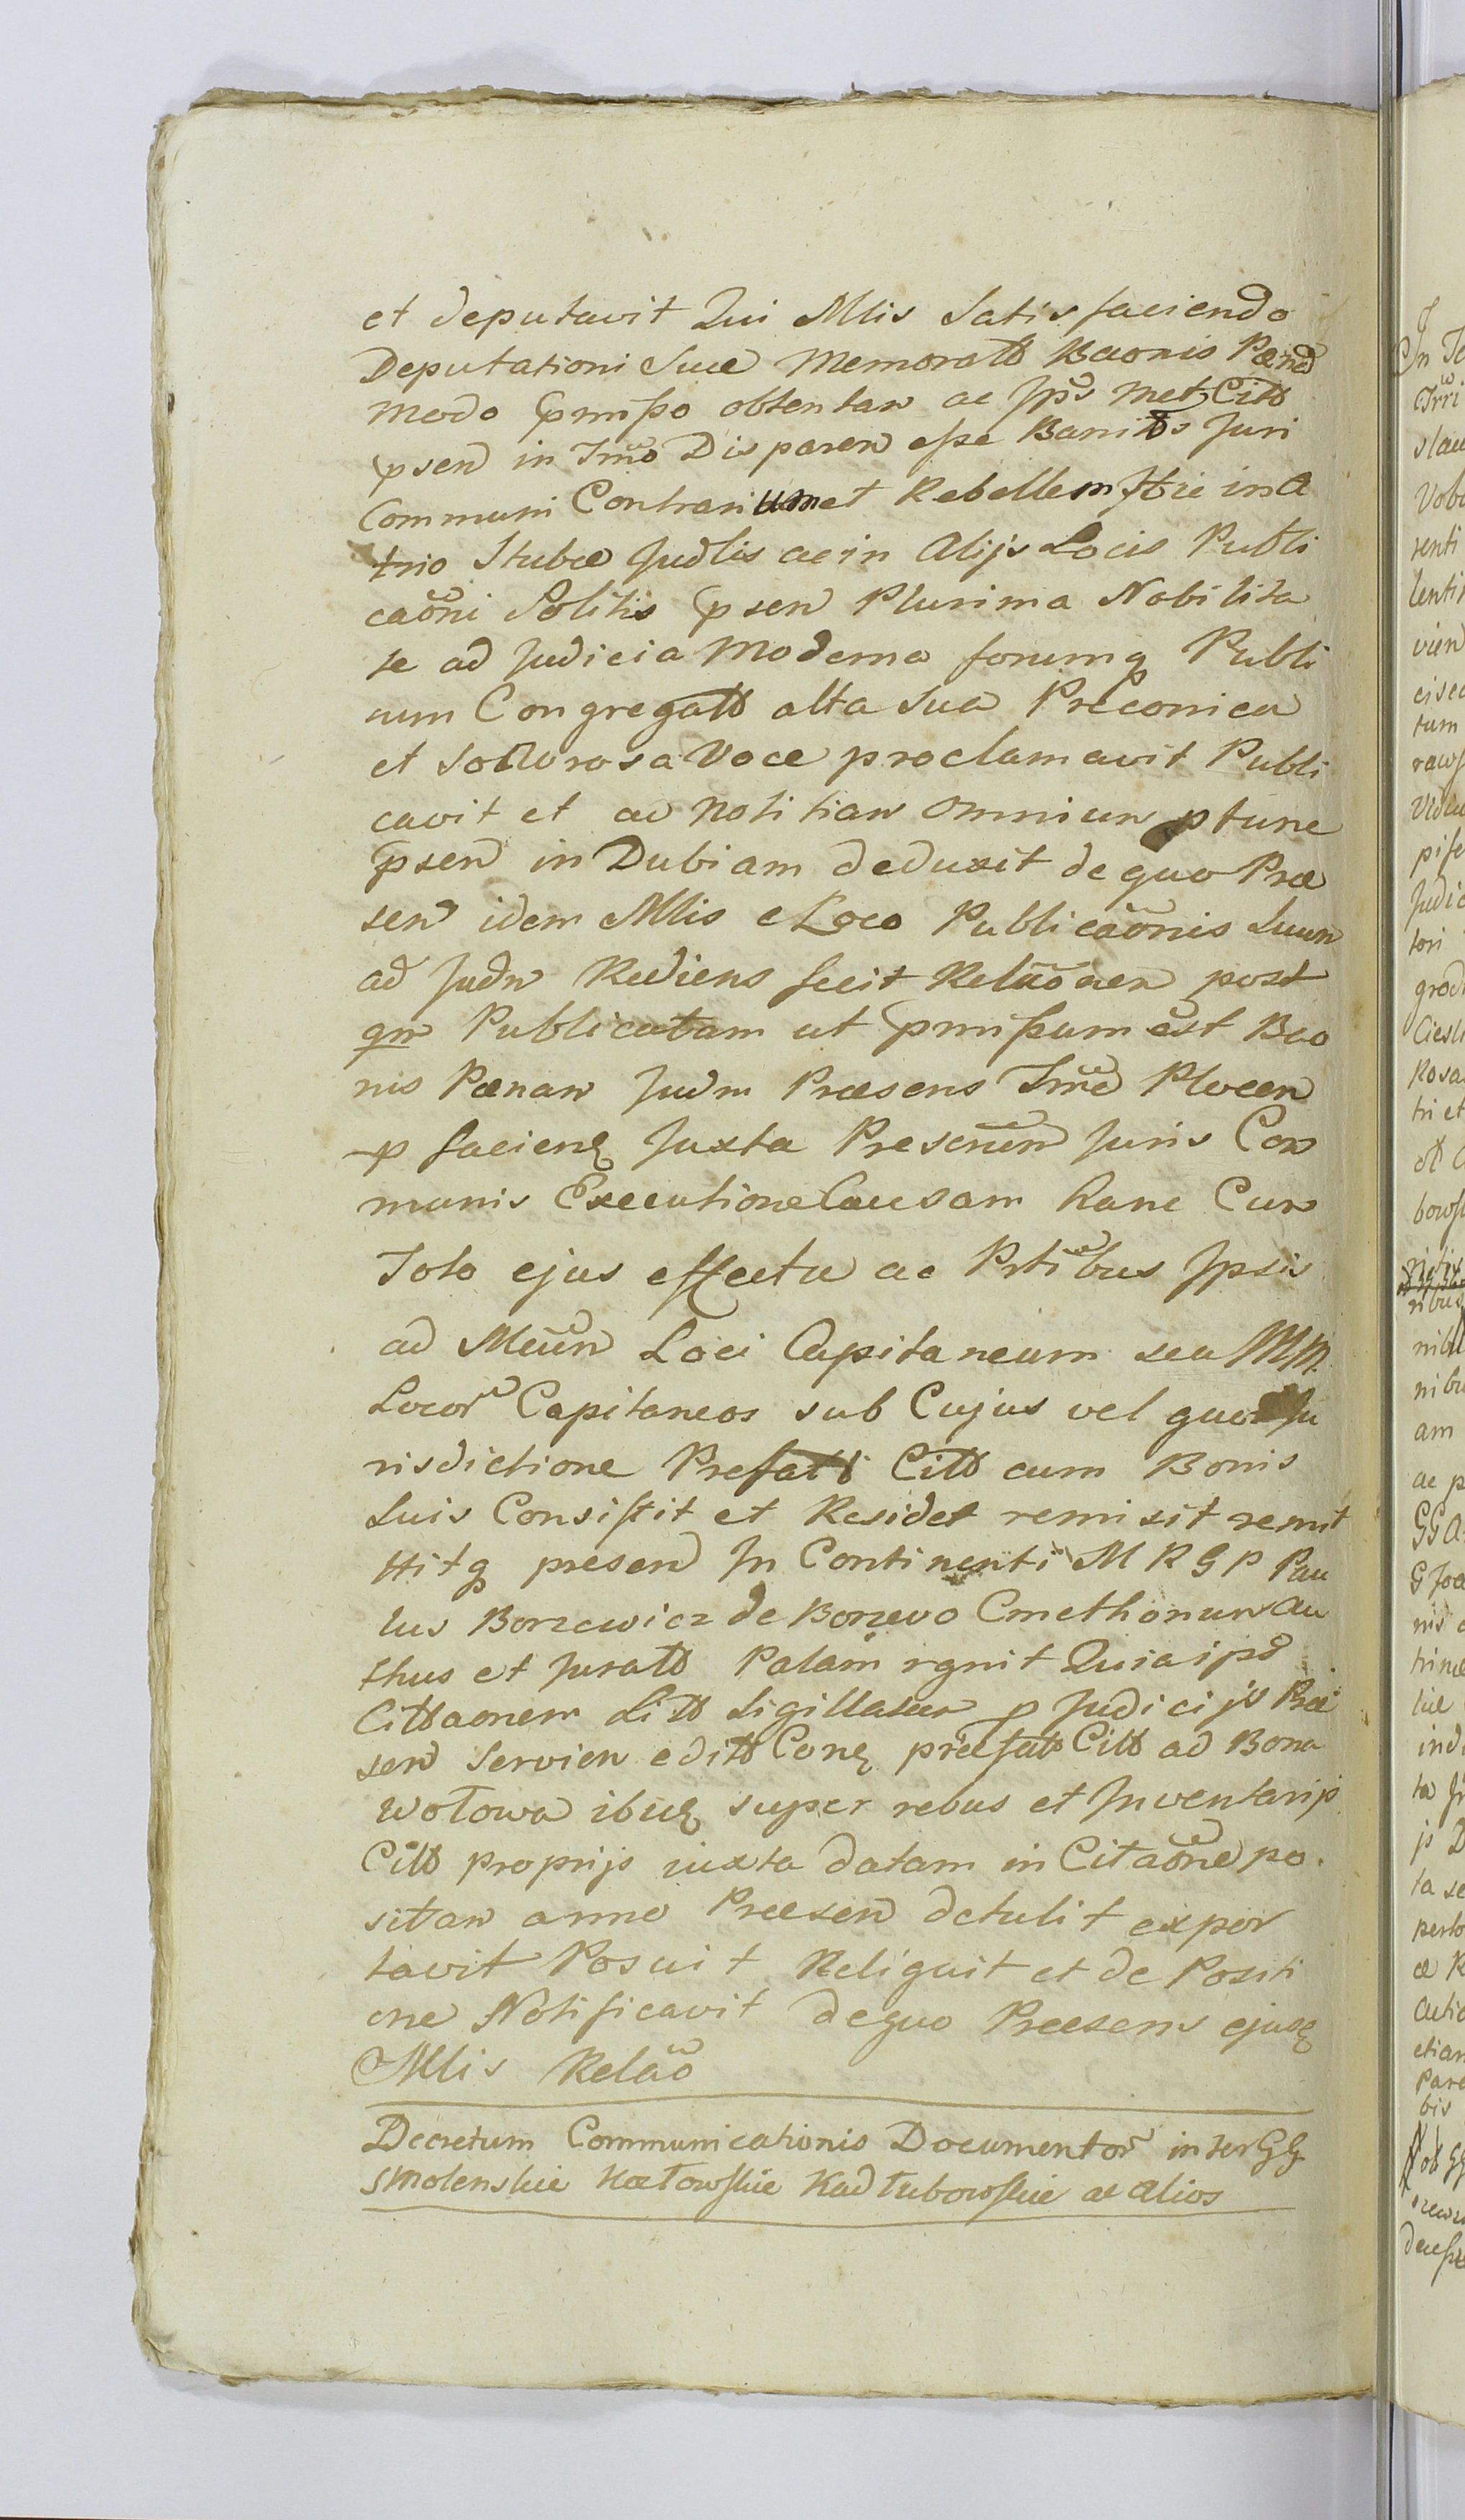 et deputavit Qui Mlis Satisfaciendo
Deputationi Suae Memoratt Baonis Paenã
modo pmißo obtentam ac Ips met Citt
psen in Tmo Disparen eße Banitts Juri
Communi Contrarium et Rebellem Hic in a
trio Stubae Judlis ac in Alijs Locis Publi
caõni Solitis psen Plurima Nobilita
te ad Judicia Moderna forumq Publi
cum Congregatt alta sua Preconica
et Sonorosa Voce proclamavit Publi
cavit et ad Notitiam Omnium ptunc
psen in Dubiam deduxit de quo Prae
sen idem Mlis e Loco Publicaõnis Suum
ad Judm Rediens fecit Relaõnem post
qm Publicatam ut pmißum est Bao
nis Paenam Judm Praesens Trre Plocen
p facienę Juxta Prescrum Juris Com
munis Executione Causam hanc Cum
Toto ejus effectu ac Prtibus Ipsis
ad Meum Loci Capitaneum seu MM.
Locor Capitaneos sub Cujus vel quor Ju
risdictione Prefatt Citt cum Bonis
Suis Consistit et Residet remisit remit
titq presen In Continenti M R G P Pau
lus Borzewicz de Borzewo Cmethonum Au
thus et Juratt Palam rgnit Quia ips
Cittaonem Litt Sigillatam p Judicijs Prae
sen Servien editt Conę praefatt Citt ad Bona
Wołowa ibuę super rebus et Inventarijs
Citt proprijs iuxta datam in Citaõne po
sitam anno Praesen detulit expor
tavit Posuit Reliquit et de Positi
one Notificavit de quo Praesens ejusę
Mlis Relaõ
Decretum Communicationis Documentor inter GG
Smolenskie Kadłubowskie ac alios